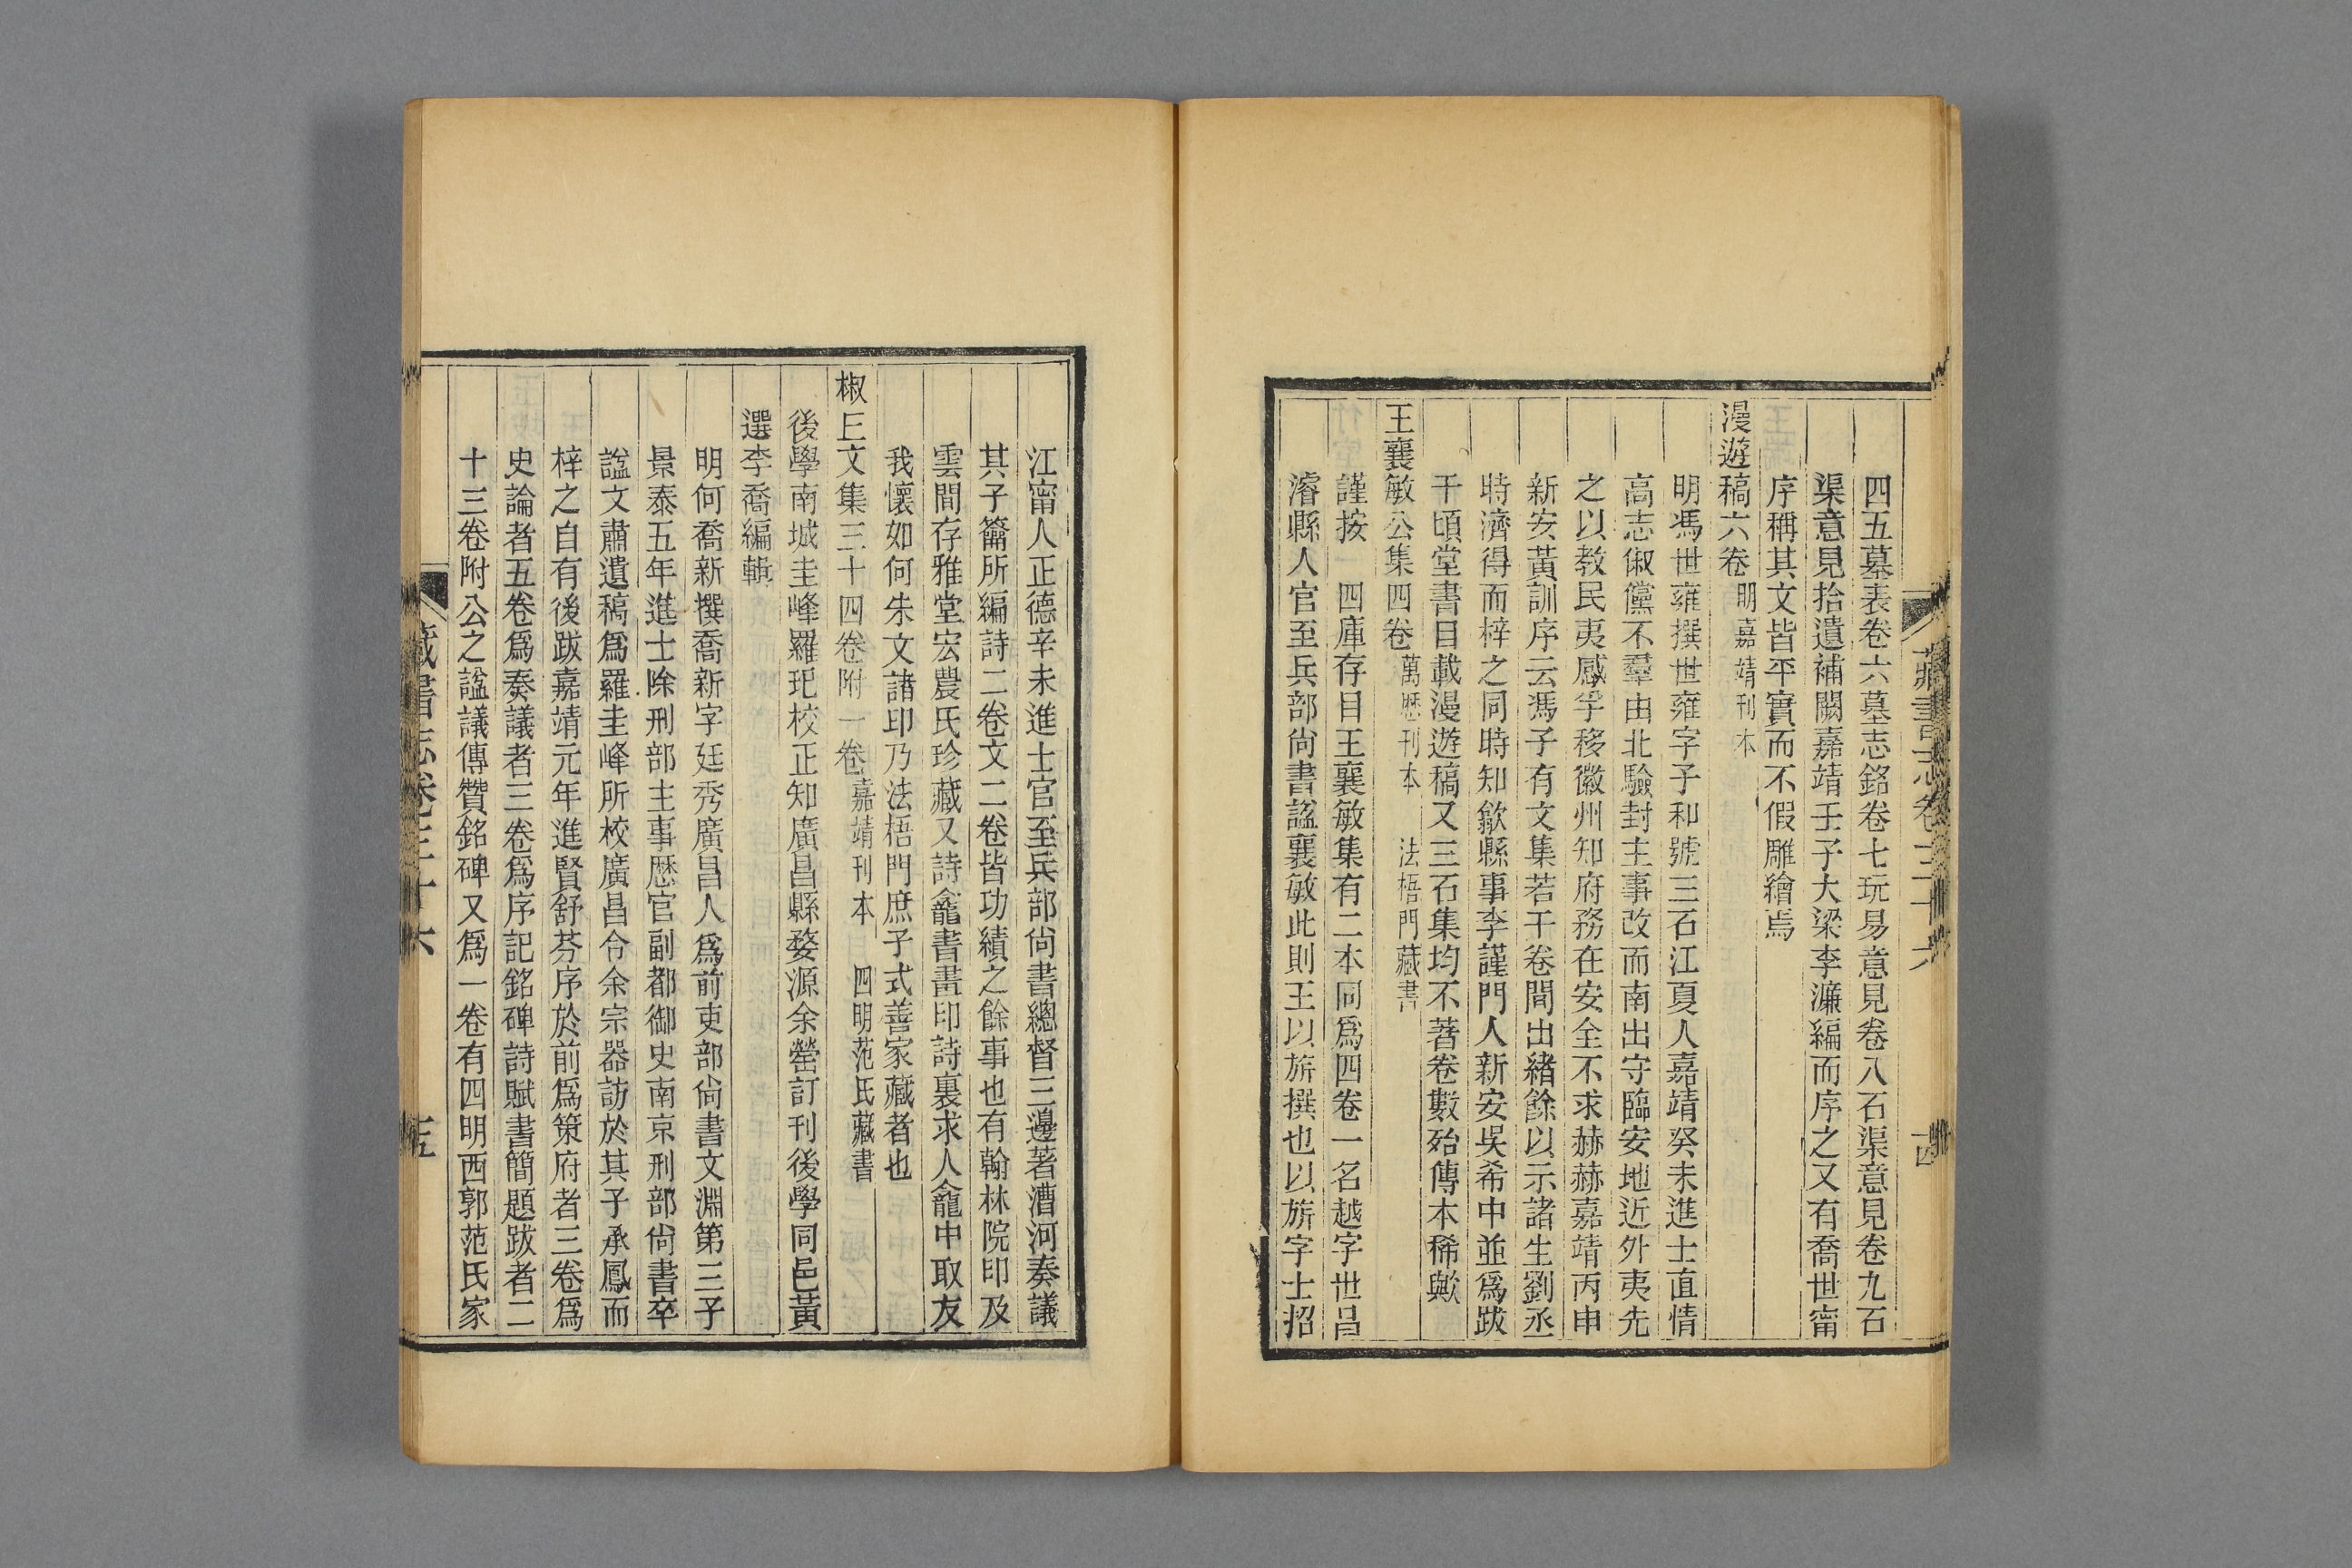 藏書志卷三十六
四五墓表卷六墓志銘卷七玩易意見卷八石渠意見卷九石
渠意見拾遺補闕嘉靖壬子大梁李濂編而序之又有喬世甯
序稱其文皆平實而不假雕繪焉
漫遊稿六卷 明嘉靖刊本
明馮世雍撰世雍字子和號三石江夏人嘉靖癸未進士直情
高志俶儻不羣由北驗封主事改而南出守臨安地近外夷先
之以教民夷感孚移徽州知府務在安全不求赫赫嘉靖丙申
新安黃訓序云馮子有文集若干卷間出緒餘以示諸生劉丞
時濟得而梓之同時知歙縣事李謹門人新安吳希中並為跋
千頃堂書目載漫遊稿又三石集均不著卷數殆傳本稀歟
王襄敏公集四卷 萬歷刊本 法梧門藏書
謹按 四庫存目王襄敏集有二本同為四卷一名越字世昌
濬縣人官至兵部尙書諡襄敏此則王以旂撰也以旂字士招
江甯人正德辛未進士官至兵部尙書總督三邊著漕河奏議
其子籥所編詩二卷文二卷皆功績之餘事也有翰林院印及
雲間存雅堂宏農氏珍藏又詩龕書畫印詩裏求人龕中取友
我懷如何朱文諸印乃法梧門庶子式善家藏者也
椒㠪文集三十四卷附一卷 嘉靖刊本 四明范氏藏書
後學南城圭峰羅玘校正知廣昌縣婺源余罃訂刊後學同邑黃
選李喬編輯
明何喬新撰喬新字廷秀廣昌人為前吏部尙書文淵第三子
景泰五年進士除刑部主事歷官副都御史南京刑部尙書卒
諡文肅遺稿為羅圭峰所校廣昌令余宗器訪於其子承鳳而
梓之自有後跋嘉靖元年進賢舒芬序於前為策府者三卷為
史論者五卷為奏議者三卷為序記銘碑詩賦書簡題跋者二
十三卷附公之諡議傳贊銘碑又為一卷有四明西郭范氏家
藏書志卷三十六